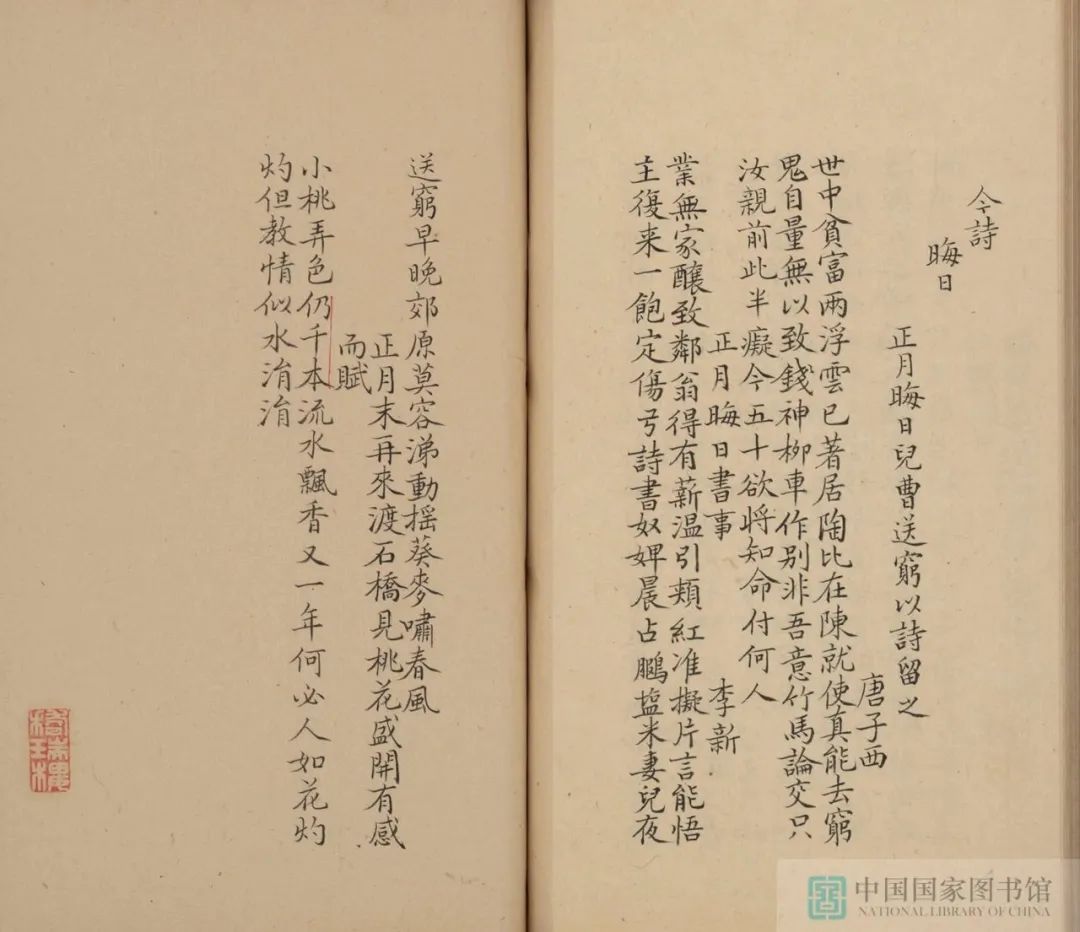 今詩
晦日
正月晦日兒曹送窮以詩留之
唐子西
世中貧富兩浮雲已著居陶比在陳就使真能去窮
鬼自量無以致錢神柳車作别非吾意竹馬論交只
汝親前此半癡今五十欲將知命付何人
正月晦日書事
李新
業無家釀致鄰翁得有薪温引頰紅准擬片言能悟
主復来一飽定傷弓詩書奴婢晨占鵩盐米妻兒夜
送窮早晚郊原莫容涕動揺葵麥嘯春風
正月末再來渡石橋見桃花盛開有感
而賦
小桃弄色仍千本流水飄香又一年何必人如花灼
灼但教情似水涓涓
中国国家图书馆
NATIONAL LIBRARY OF CHINA